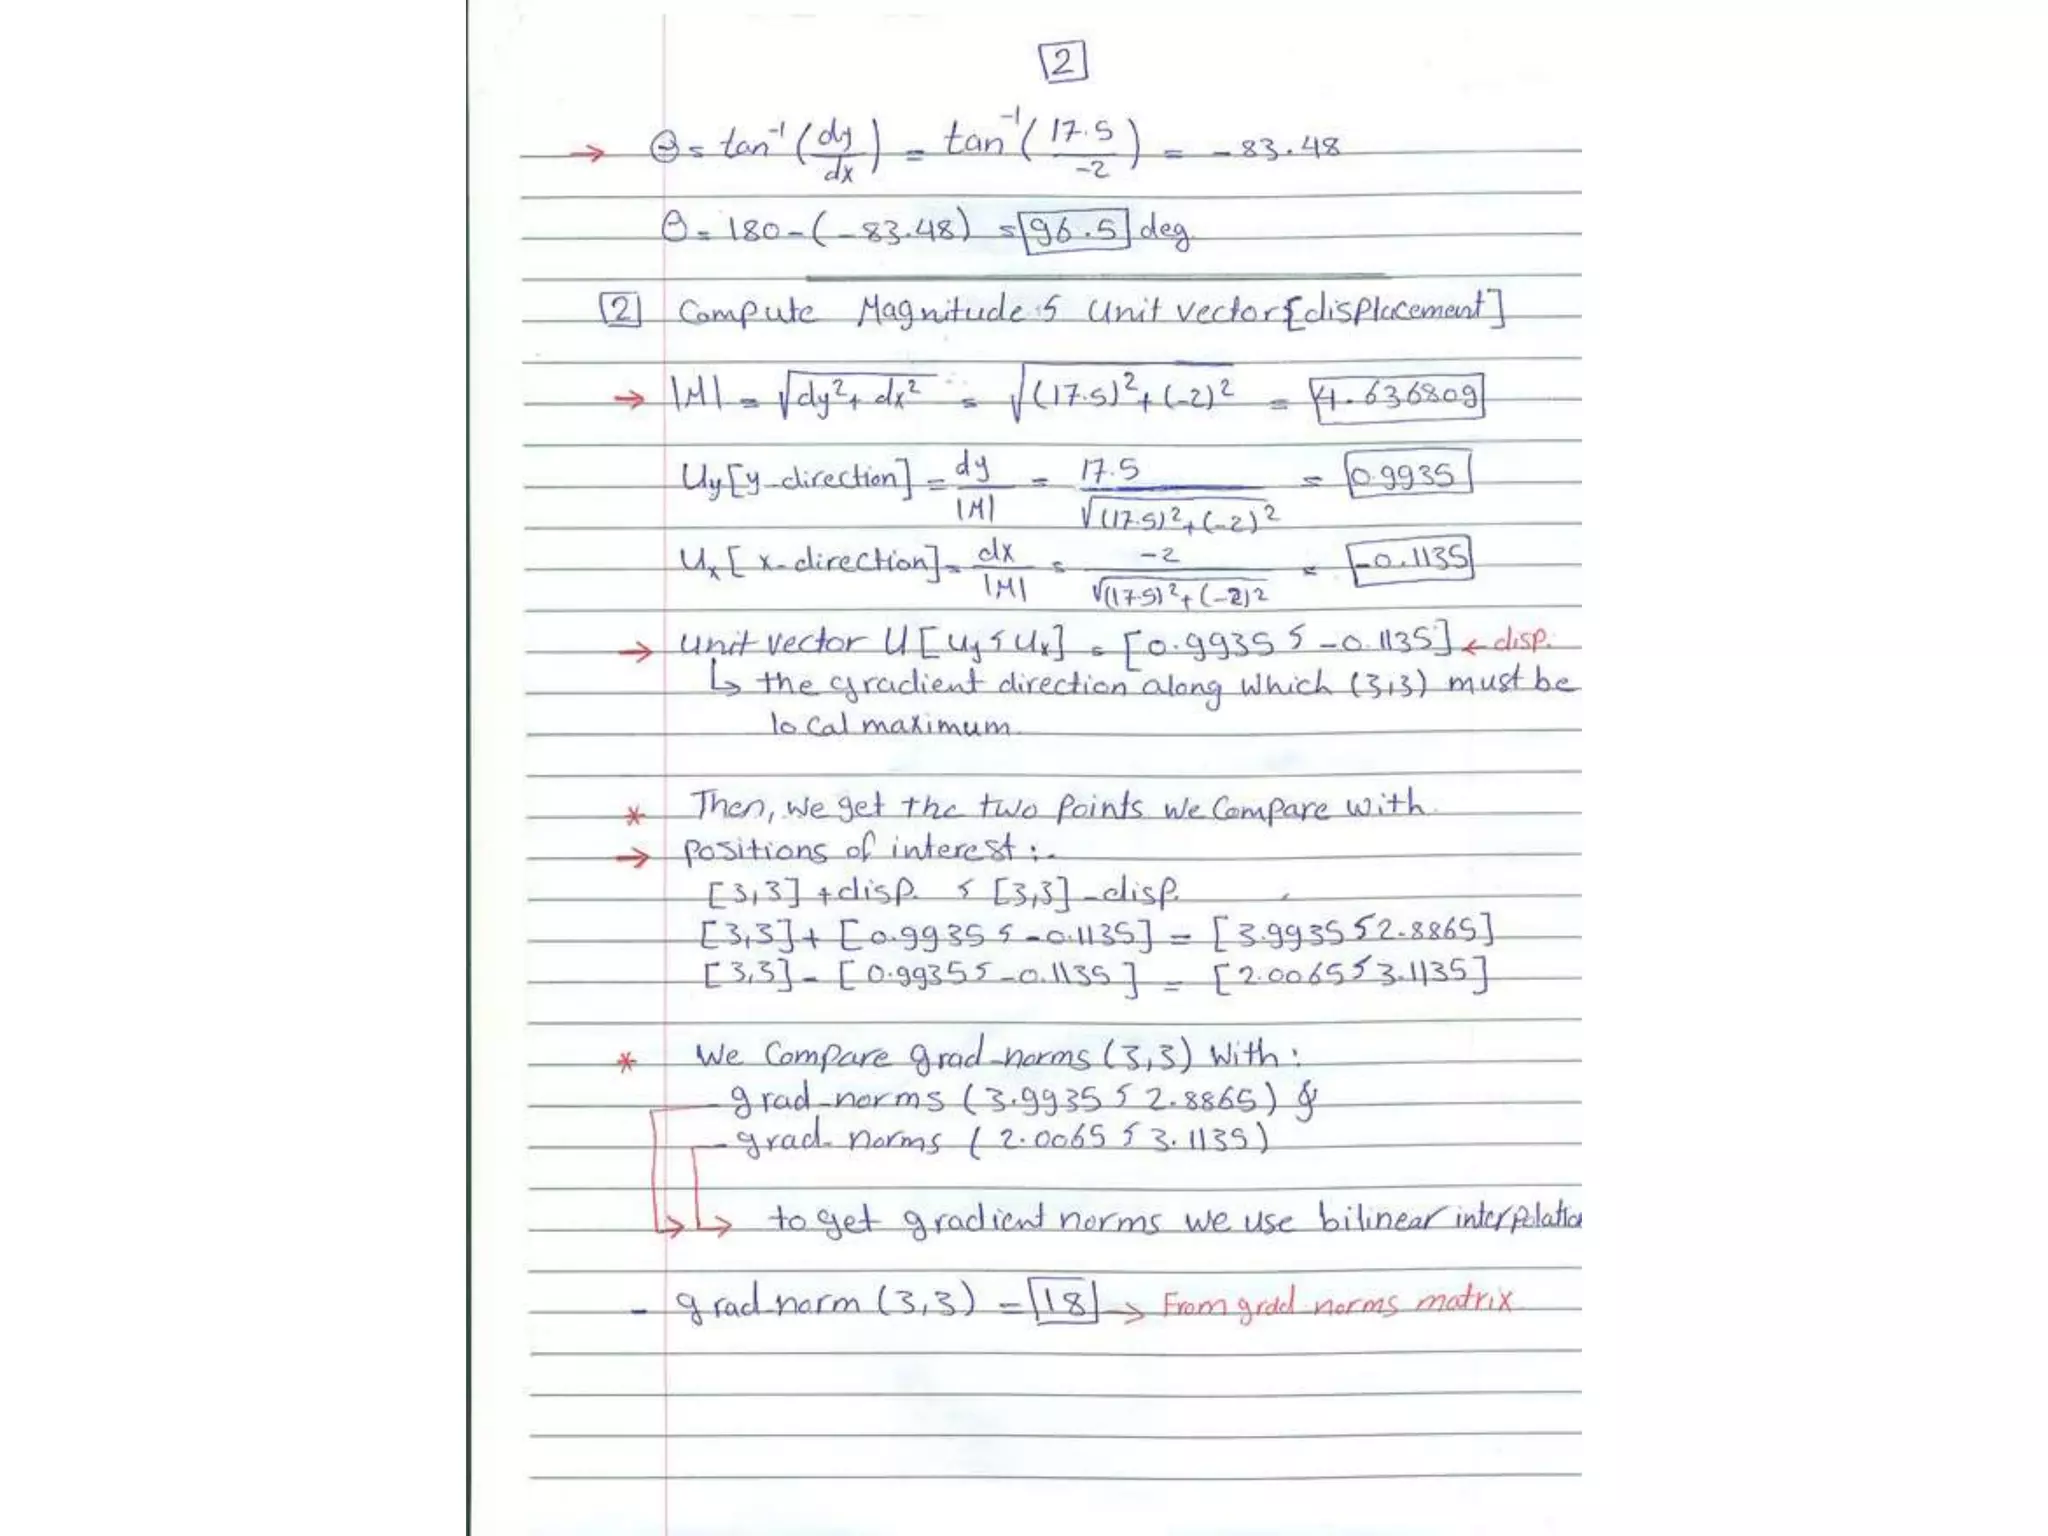 2
→ θ = tan⁻¹(dy/dx) = tan⁻¹(17.5/-2) = -83.48
θ = 180 - (-83.48) = 96.5 deg.
2 Compute Magnitude & Unit vector [displacement]
→ |M| = √(dy² + dx²) = √((17.5)² + (-2)²) = 4.636809
Uy [y-direction] = dy/|M| = 17.5/√((17.5)² + (-2)²) = 0.9935
Ux [x-direction] = dx/|M| = -2/√((17.5)² + (-2)²) = -0.1135
→ unit vector U [Uy , Ux] = [0.9935 , -0.1135] ← disp.
↳ the gradient direction along which (3,3) must be
local maximum.
* Then, we get the two points we compare with
→ positions of interest :-
[3,3] + disp. , [3,3] - disp.
[3,3] + [0.9935 , -0.1135] = [3.9935 , 2.8865]
[3,3] - [0.9935 , -0.1135] = [2.0065 , 3.1135]
* We Compare grad-norms (3,3) With :
- grad-norms (3.9935 , 2.8865) &
- grad-norms (2.0065 , 3.1135)
→ → to get gradient norms we use bilinear interpolatio
- grad-norm (3,3) = 18 → From grad-norms matrix